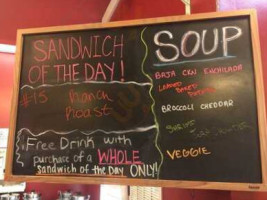 SANDWICH
OF THE DAY!
#15 Ranch
Roast
Free Drink with
purchase of a WHOLE
sandwich of the DAY ONLY!
SOUP
BAJA CKN ENCHILADA
LOADED BAKED
POTATO
BROCCOLI CHEDDAR
VEGGIE